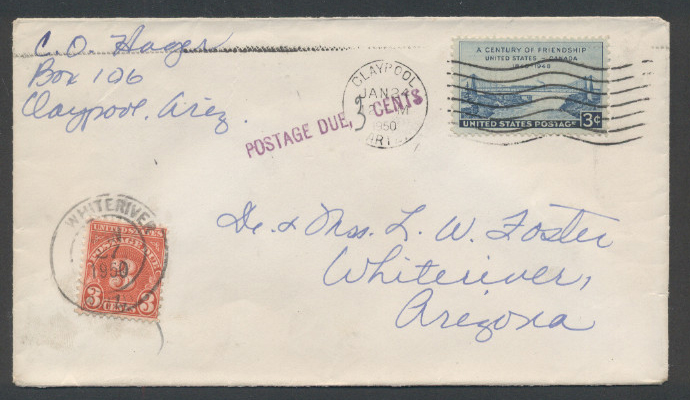 C. O. Hager
Box 106
Claypool, Ariz.
A CENTURY OF FRIENDSHIP
UNITED STATES - CANADA
1848-1948
UNITED STATES POSTAGE 3¢
CLAYPOOL
JAN 24
M
1950
ARIZ.
POSTAGE DUE, 3 CENTS
WHITERIVER
27
1950
UNITED STATES
POSTAGE DUE
3
3 CENTS 3
Dr. & Mrs. L. W. Foster
Whiteriver,
Arizona